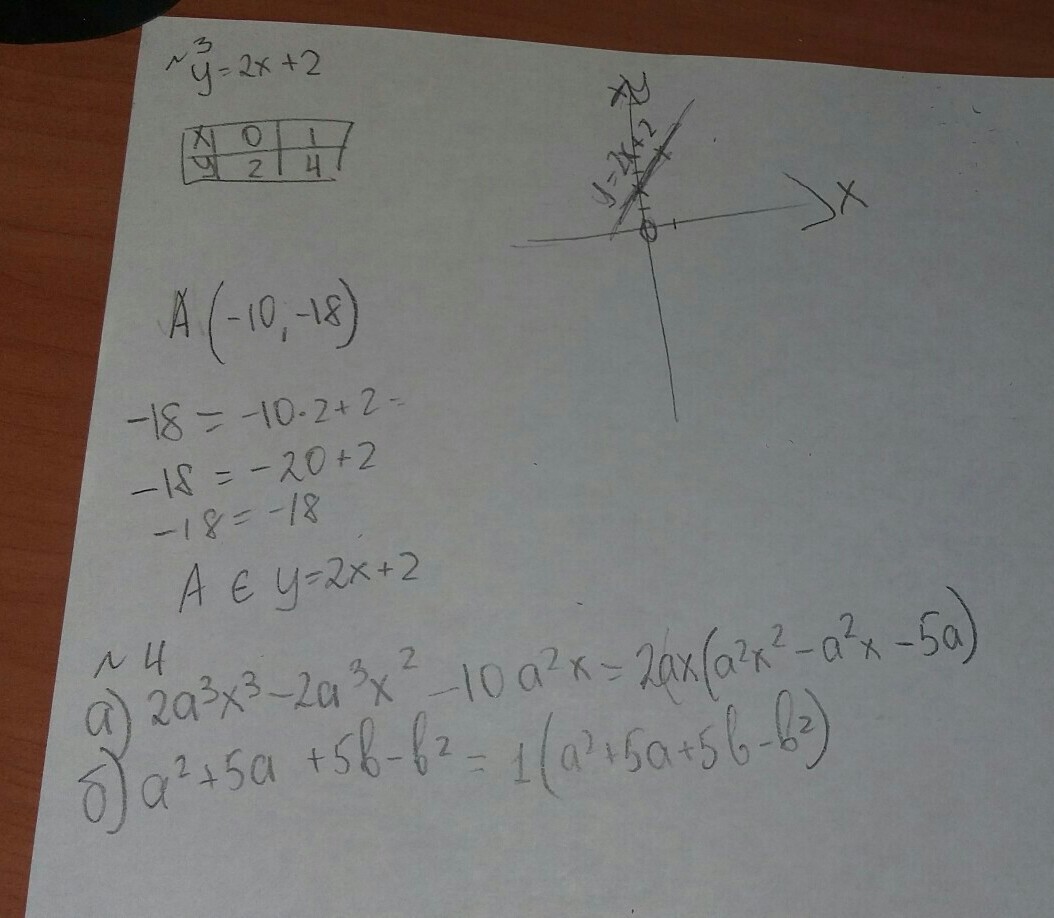 ~3
y=2x+2
x 0 1
y 2 4
y
y=2x+2
x
0
A(-10,-18)
-18=-10·2+2=
-18=-20+2
-18=-18
A ∈ y=2x+2
~4
а) 2a³x³-2a³x²-10a²x=2ax(a²x²-a²x-5a)
б) a²+5a+5b-b²=1(a²+5a+5b-b²)